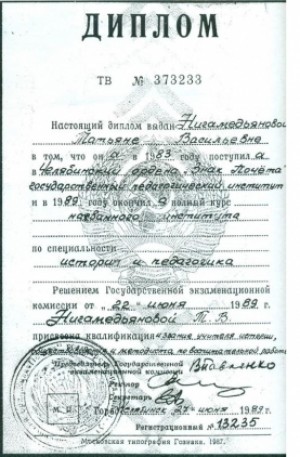 ДИПЛОМ
ТВ № 373233
Настоящий диплом выдан Нигамедьяновой
Татьяне Васильевне
в том, что она в 1983 году поступила в
Челябинский ордена „Знак Почёта"
государственный педагогический институт
и в 1989 году окончила полный курс
названного института
по специальности
история и педагогика
Решением Государственной экзаменационной
комиссии от „22" июня 1989 г.
Нигамедьяновой Т. В.
присвоена квалификация и звание учителя истории,
обществоведения и методиста по воспитательной работе
Председатель Государственной
экзаменационной комиссии
Ректор
Секретарь
М. П.
Город Челябинск 27 июня 1989 г.
Регистрационный № 13235
Московская типография Гознака. 1987.